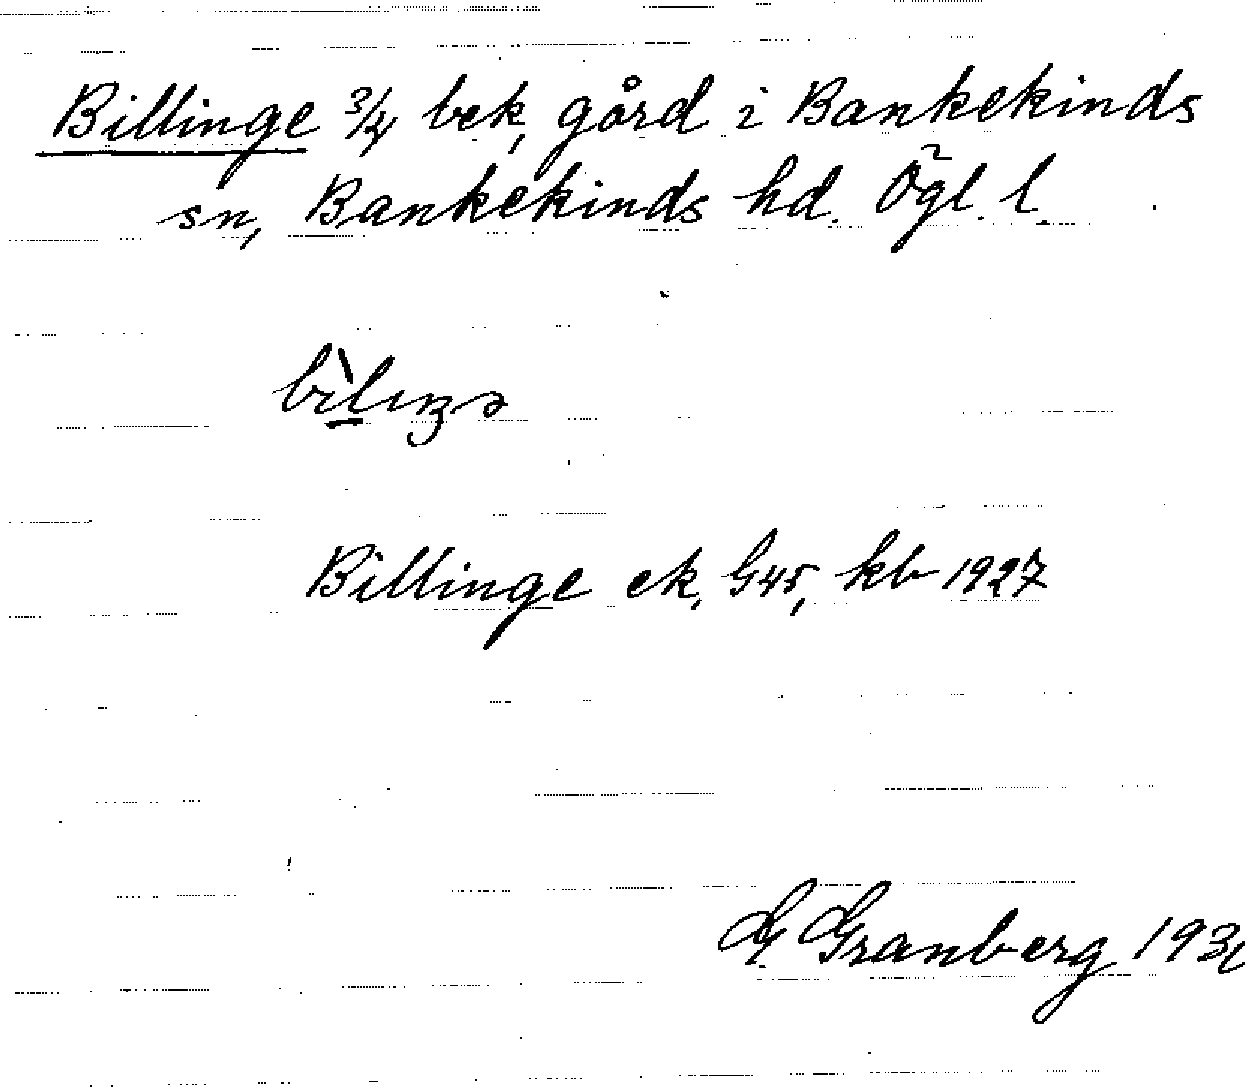 Billinge 3/4 bek, gård i Bankekinds
sn, Bankekinds hd. Ögl. l.
Billinge ek, G45, kb 1927
G. Granberg